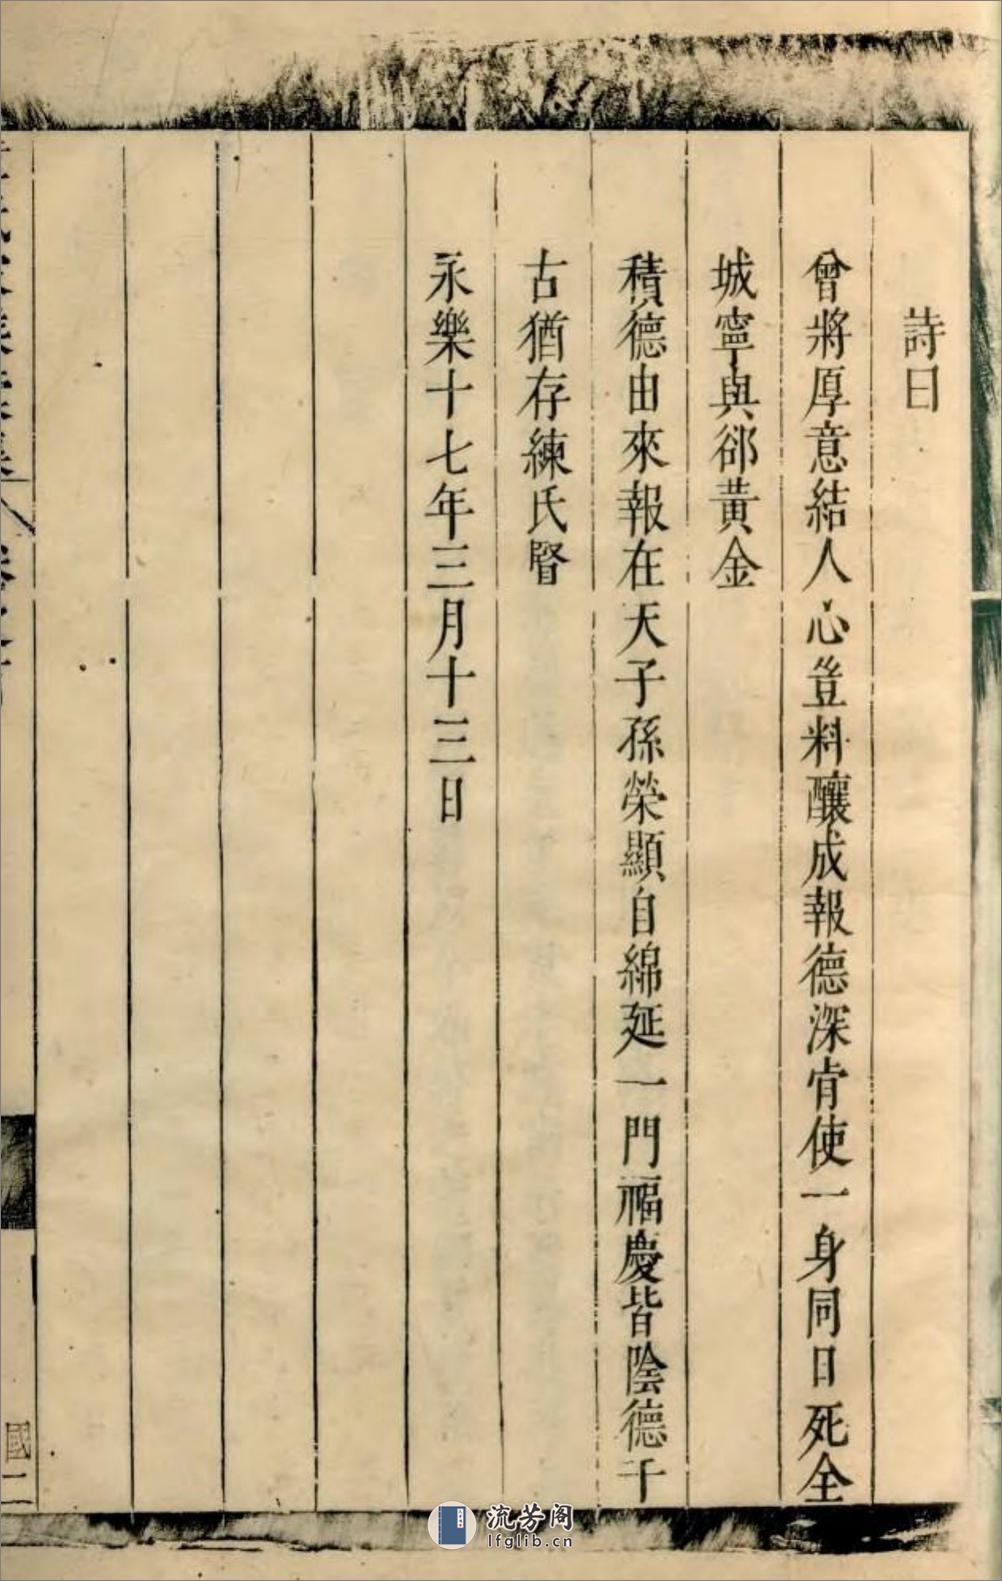 詩曰
曾將厚意結人心豈料釀成報德深肯使一身同日死全
城寧與郤黃金
積德由來報在天子孫榮顯自綿延一門福慶皆陰德千
古猶存練氏賢
永樂十七年三月十三日
國二
流芳阁
lfglib.cn